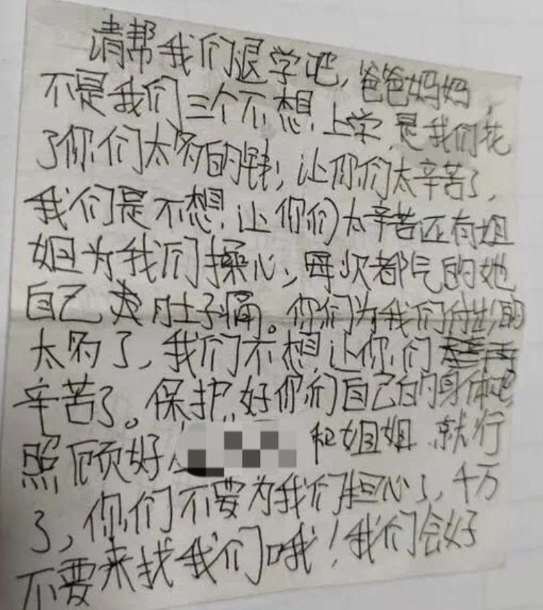 请帮我们退学吧，爸爸妈妈，
不是我们三个不想上学，是我们花
了你们太多的钱，让你们太辛苦了，
我们是不想让你们太辛苦还有姐
姐为我们操心，每次都气的她
自己 肚子痛。你们为我们付出的
太多了，我们不想让你们
辛苦了。保护好你们自己的身体吧
照顾好 和姐姐就行
了，你们不要为我们担心了，千万
不要来找我们哦！我们会好